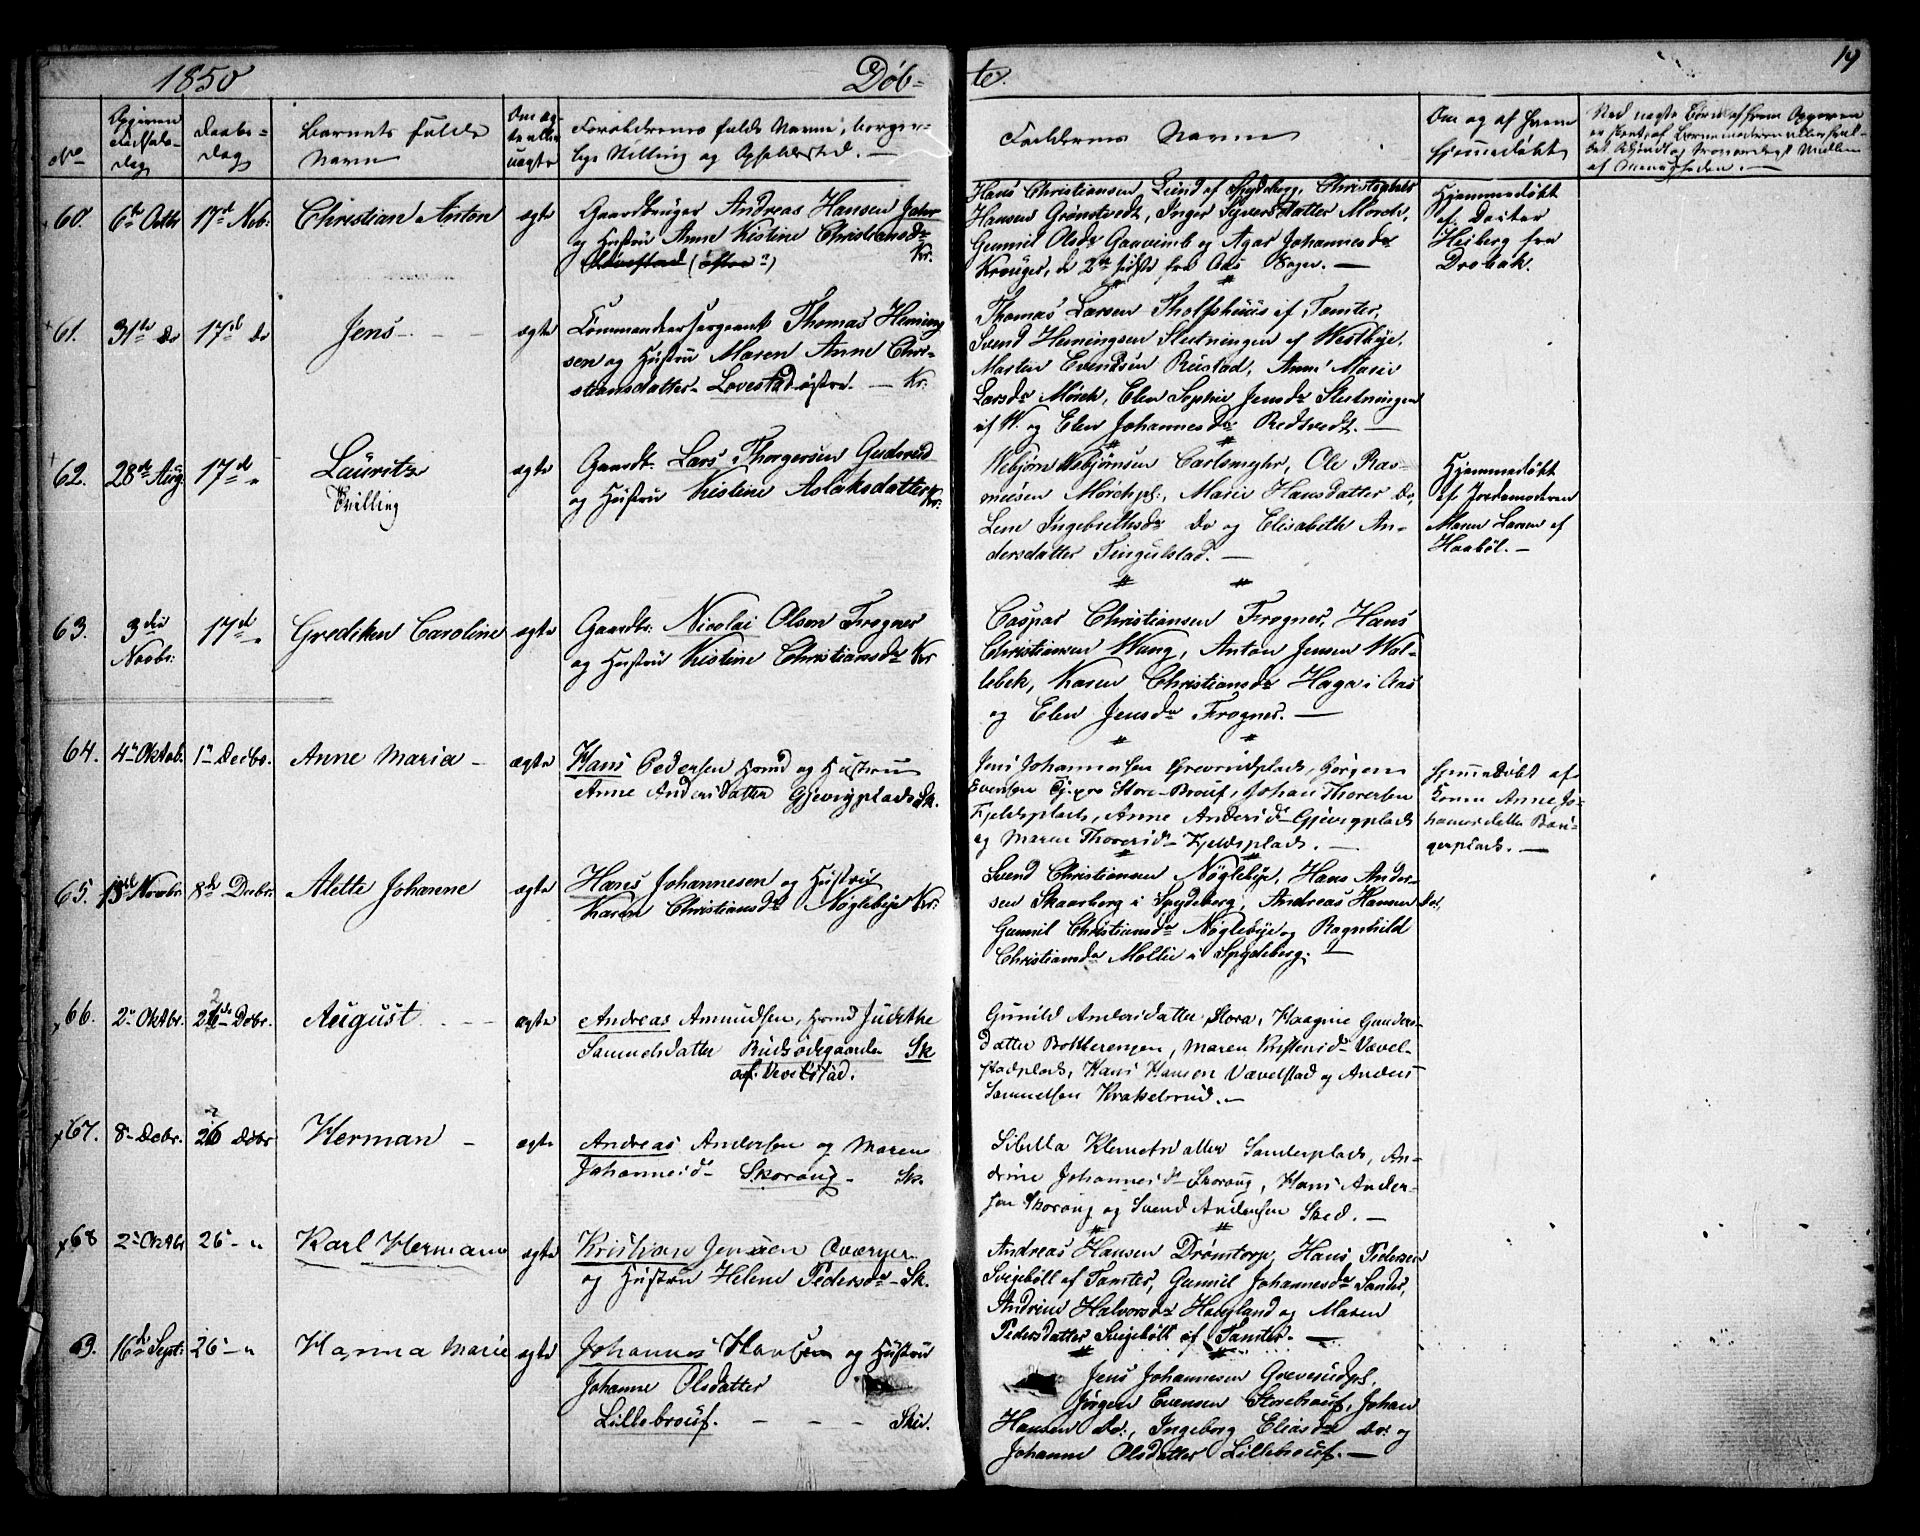 1850 Døb-
te. 19
No
Opgiven Fødsels-dag
Daabs-dag
Barnets fulde Navn
Om ægte eller uægte
Forældrenes fulde Navne, borger-
lige Stilling og Opholdssted. —
Faddernes Navne
Om og af hvem
hjemmedøbt
60. 6te Octbr 17de Nvb: Christian Anton ægte
Gaardbruger Andreas Hansen
og Hustru Anne Kistine Christiansdr
Kr.
Hans Christiansen, Lund af Spydeberg, Christopher
Hansen Grønstvedt, Inger Syversdatter Morch,
Gunnil Olsdr og Agar Johannesdr
Krouger, de 2de sidste fra Aas Sogn. —
Hjemmedøbt
af Docter
Heiberg fra
Drøbak.
61. 31te Do 17de do Jens - - - ægte
Commandeersergeant Thomas Heming
sen og Hustru Maren Anne Chri-
stiansdatter Lovestad østre. — Kr.
Thomas Larsen Tholfshuus af Tomter,
Svend Hemingsen Slutningen af Westbye,
Marten Evendsen Rustad, Anne Marie
Larsdr Morch, Elen Sophie Jensdr Slutningen
af W. og Elen Johannesdr Redtvedt. —
62. 28de Aug. 17de " Lauritz
Tvilling
ægte
Gaardbr. Lars Thorgersen Guderud
og Hustru Kistine Aslaksdatter Kr.
Webjørn Webjørnsen Carlsmyhr, Ole Ras-
musen Morchpl:, Marie Hansdatter Do,
Lene Ingebrethsdr Do og Elisabeth An-
dersdatter Tingulstad. —
Hjemmedøbt
af Jordemoderen
Maren Larsen af
Haabøl. —
63. 3die
Novbr:
17de " Gredikea Caroline ægte
Gaardbr: Nicolai Olsen Frogner
og Hustru Kistine Christiansdr Kr
Caspar Christiansen Frogner, Hans
Christiansen Wang, Anton Jensen Wol-
lebek, Karen Christiansdr Haga i Aas
og Elen Jensdr Frogner. —
64. 4de Oktob. 1te Decbr. Anne Maria - ægte
Hans Pedersen Hmd og Hustru
Anne Andersdatter Gjevigplads Sk.
Jens Johannesen Grevrudplads, Jørgen
Evensen Store-Brouf, Johan Thoresen
Fjeldsplads, Anne Andersd- Gjevegplads
og Maren Thoresd- Fjeldsplads. —
Hjemmedøbt af
Konen Anne Jo-
hannesdatter
65. 13de Novbr. 8de Decbr. Alette Johanne ægte
Hans Johannesen og Hustru
Karen Christiansdr Nøglebye Kr:
Svend Christiansen Nøglebye, Hans Ander-
sen Skaarberg i Spydeberg, Andreas Hansen Do,
Gunnil Christiansdr Nøglebye og Ragnhild
Christiansdr Mollie i Spydeberg. —
66. 2de Oktbr. Debr. August - - - ægte
Andreas Amundsen, Hmd Judithe
Samuelsdatter Rudsødegaarden Sk
af Vevelstad.
Gunild Andersdatter Stora, Haagine Gunders-
datter Botterengen, Maren Kristensd- Vævel-
stadplads, Hans Hansen Vævelstad og Anders
Samuelsen Krakelsrud. —
67. 8- Debr. 26 Debr Herman - ægte
Andreas Andersen og Maren
Johannesd- Skoroug - Sk.
Sibilla Klemetsdatter Sanderplads, An-
drine Johannesd- Skoroug, Hans Ander-
sen Skoroug og Svend Andersen Sked. —
68 2de Oktbr 26- " Karl Herman ægte
Kristian Jensen Oværyer
og Hustru Helene Pedersdr - Sk.
Andreas Hansen Drømtorp, Hans Pedersen
Svigebøll af Tomter, Gunnil Johannesdr Sander,
Andrine Halvorsdr Haugland og Maren
Pedersdatter Svigebøll af Tomter. —
69. 16de Sept: 26- " Hanna Marie ægte
Johannes Hansen og Hustru
Johanne Olsdatter
Lillebrouf. - - - Skie.
Jens Johannesen Greverudpl,
Jørgen Evensen Storebrouf, Johan
Hansen do:, Ingeborg Eliasdr do: og
Johanne Olsdatter Lillebrouf. —